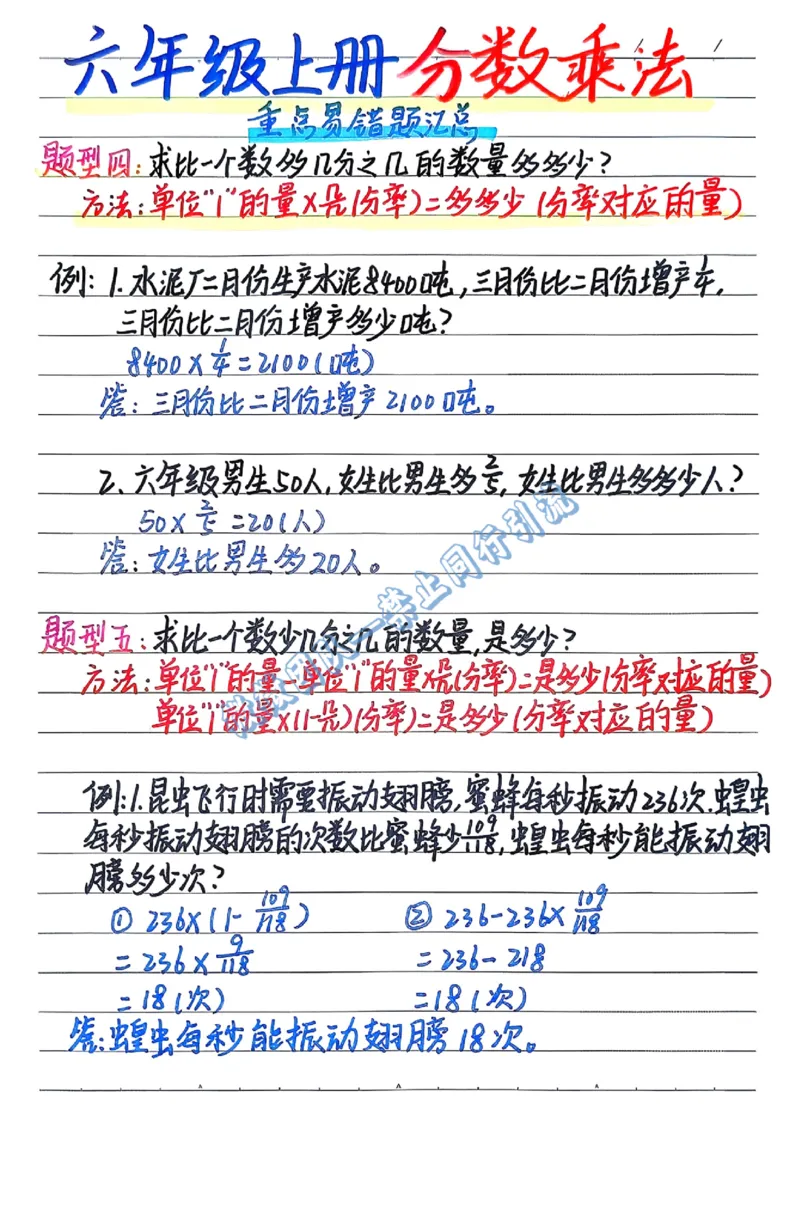 六年级上册 分数乘法
重点易错题汇总
题型四:求比一个数多几分之几的数量多多少?
方法:单位"1"的量×几/几(分率)=多多少(分率对应的量)
例:1.水泥厂二月份生产水泥8400吨,三月份比二月份增产1/4,
三月份比二月份增产多少吨?
8400×1/4=2100(吨)
答:三月份比二月份增产2100吨。
2、六年级男生50人,女生比男生多2/5,女生比男生多多少人?
50×2/5=20(人)
答:女生比男生多20人。
题型五:求比一个数少几分之几的数量,是多少?
方法:单位"1"的量-单位"1"的量×几/几(分率)=是多少(分率对应的量)
单位"1"的量×(1-几/几)(分率)=是多少(分率对应的量)
例:1.昆虫飞行时需要振动翅膀,蜜蜂每秒振动236次.蝗虫
每秒振动翅膀的次数比蜜蜂少109/118,蝗虫每秒能振动翅
膀多少次?
① 236×(1-109/118) ② 236-236×109/118
=236×9/118 =236-218
=18(次) =18(次)
答:蝗虫每秒能振动翅膀18次。
禁止同行引流